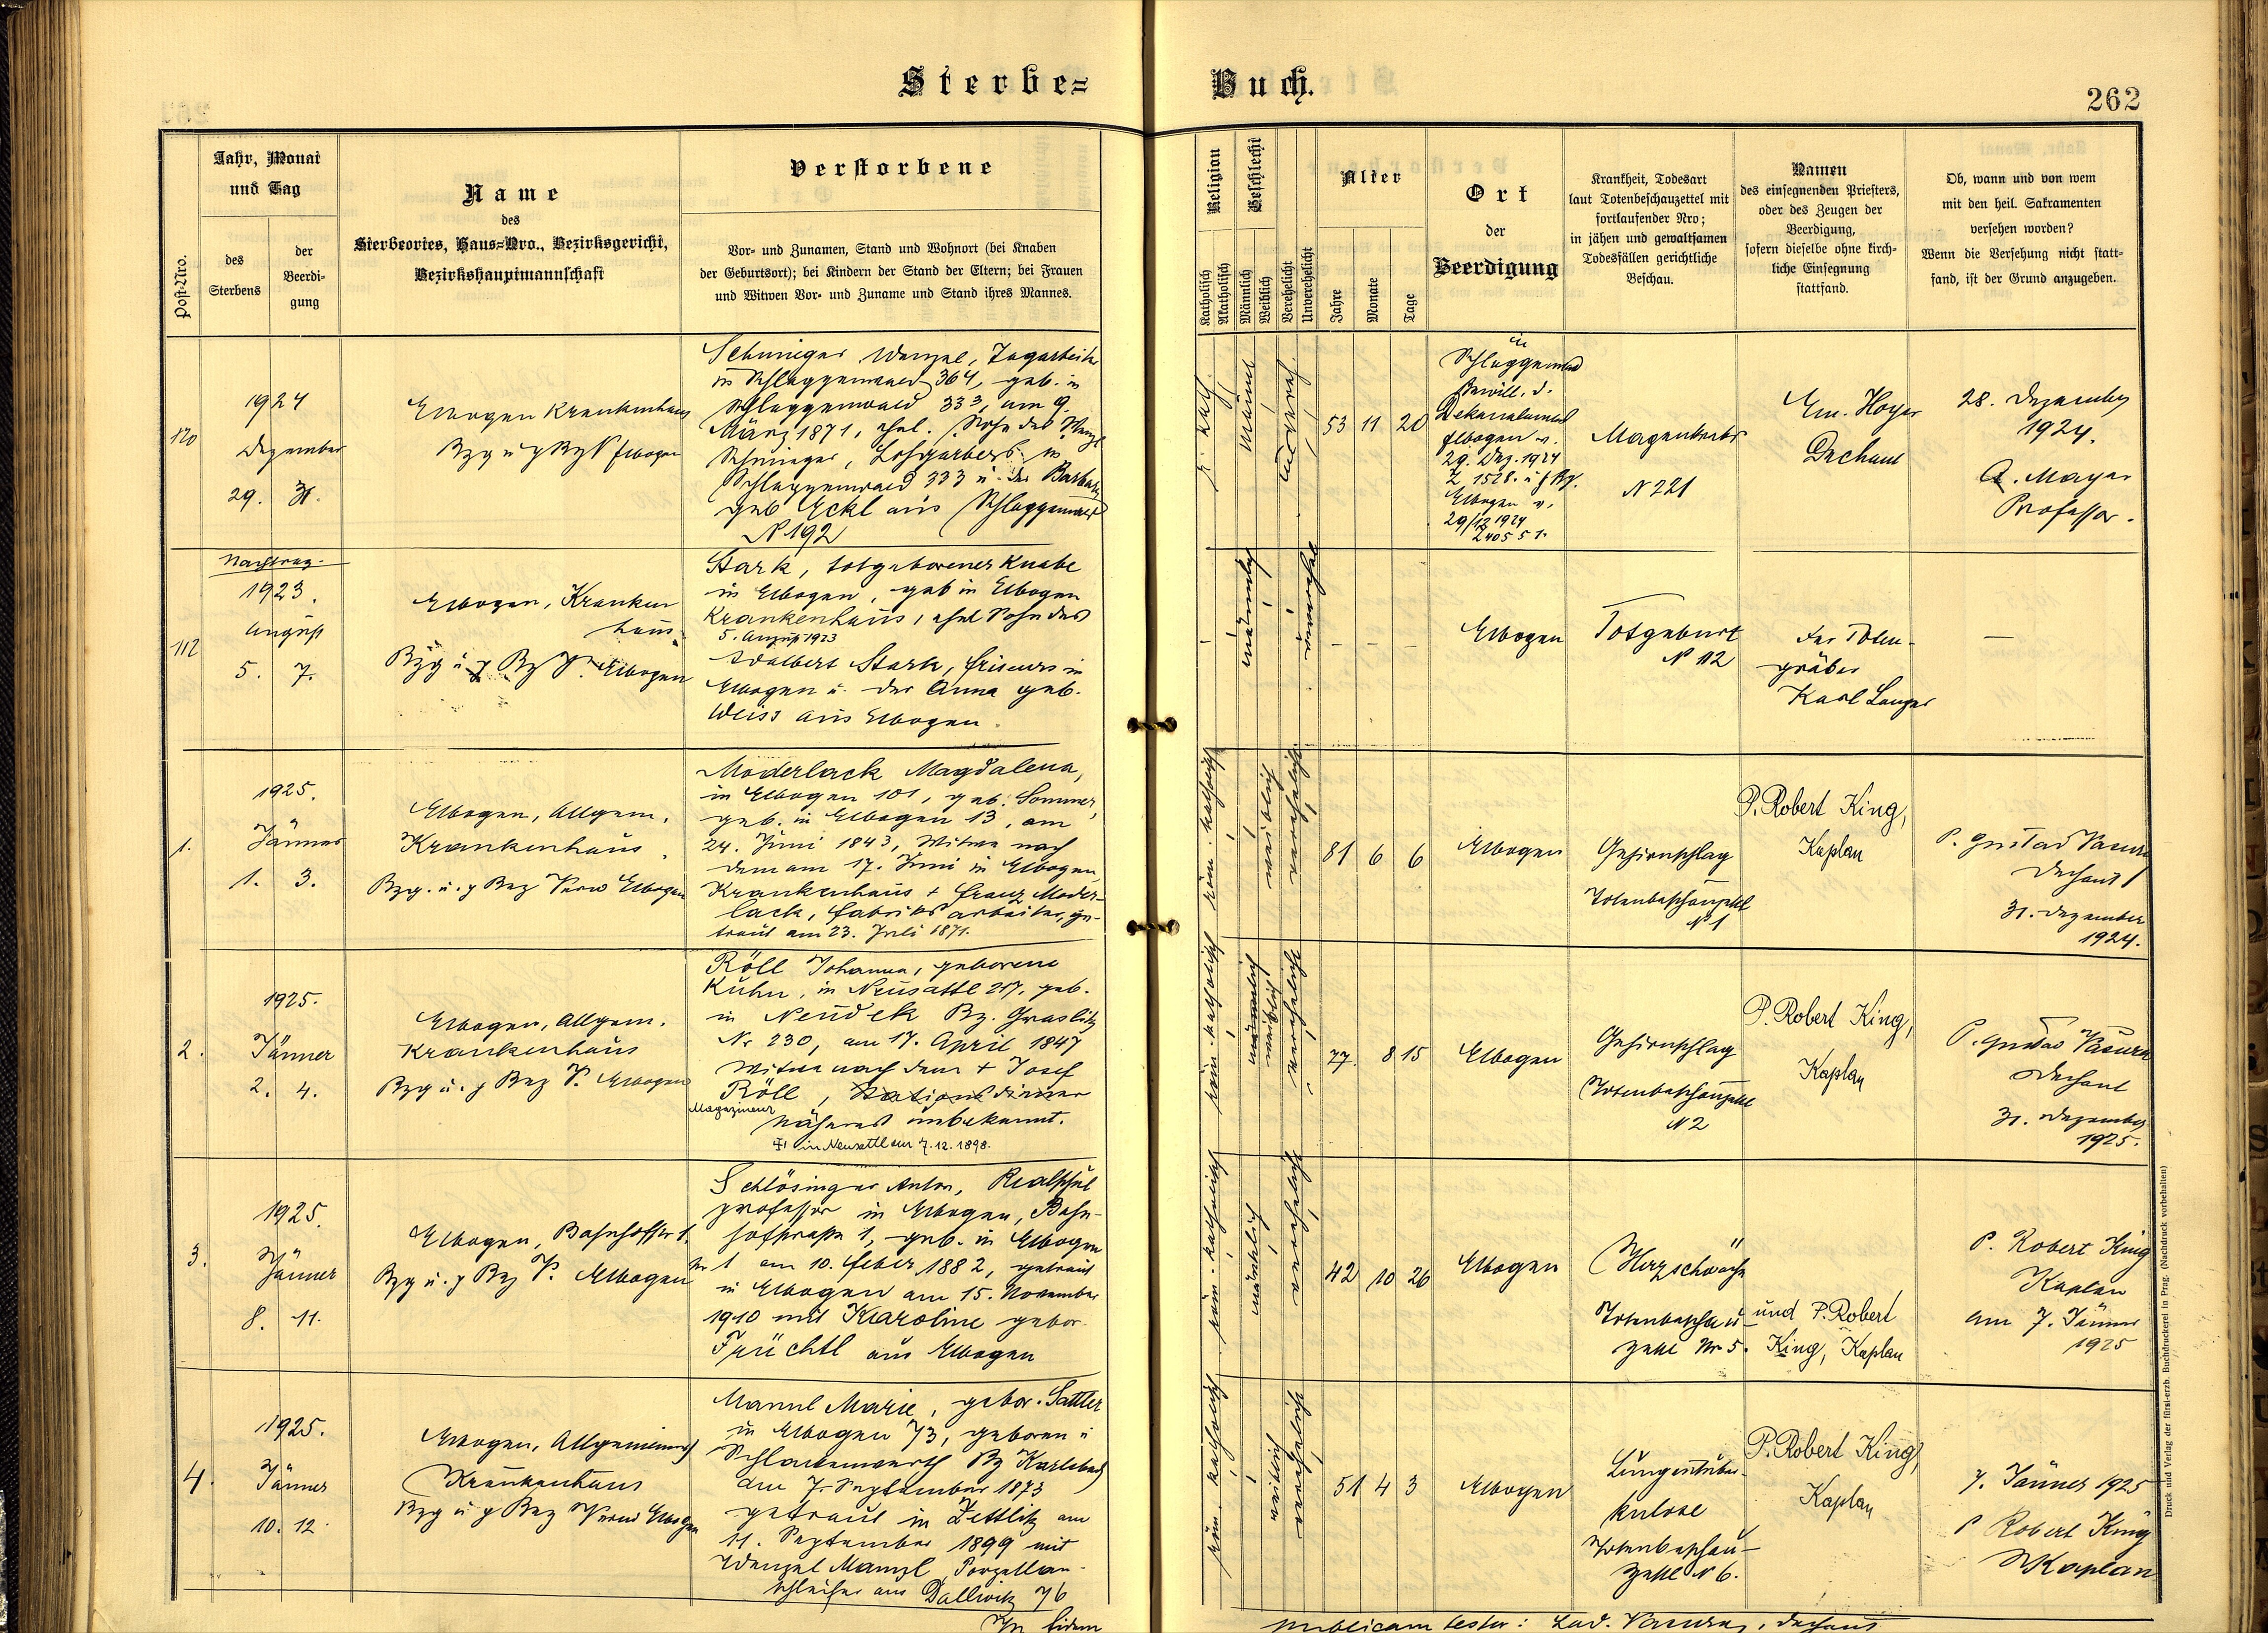 Sterbe=
Buch.
262
Post-Nro.
Jahr, Monat
und Tag
des
Sterbens
der
Beerdi-
gung
Name
des
Sterbeortes, Haus=Nro., Bezirksgericht,
Bezirkshauptmannschaft
Verstorbene
Vor- und Zunamen, Stand und Wohnort (bei Knaben
der Geburtsort); bei Kindern der Stand der Eltern; bei Frauen
und Witwen Vor- und Zuname und Stand ihres Mannes.
Religion
Katholisch
Akatholisch
Geschlecht
Männlich
Weiblich
Verehelicht
Unverehelicht
Alter
Jahre
Monate
Tage
Ort
der
Beerdigung
Krankheit, Todesart
laut Totenbeschauzettel mit
fortlaufender Nro;
in jähen und gewaltsamen
Todesfällen gerichtliche
Beschau.
Namen
des einsegnenden Priesters,
oder des Zeugen der
Beerdigung,
sofern dieselbe ohne kirch-
liche Einsegnung
stattfand.
Ob, wann und von wem
mit den heil. Sakramenten
versehen worden?
Wenn die Versehung nicht statt-
fand, ist der Grund anzugeben.
120
1924
Dezember
29. 31.
Elbogen Krankenhaus
Bzg u g Bz V Elbogen
Schmieger Wenzel, Tagarbeiter
in Schlaggenwald 364, geb. in
Schlaggenwald 333, am 9.
März 1871, ehel. Sohn des Wenzl
Schmieger, Lohgerbers in
Schlaggenwald 333 u. der Barbara
geb Eckl aus Schlaggenwald
N 192
r. kath.
männl
53 11 20
in
Schlaggenwald
Bewill. d.
Dekanalamtes
Elbogen v.
29. Dez. 1924
Z 1528. u g Bz.
Elbogen v.
29/12 1924
Magenkrebs
N 221
Em. Hoyer
Dechant
28. Dezember
1924.
A. Mayer
Professor.
Nachtrag.
112
1923.
August
5. 7.
Elbogen, Kranken
haus
Bzg u g Bz V. Elbogen
Stark, totgeborener Knabe
in Elbogen, geb in Elbogen
Krankenhaus, ehel Sohn des
5. August 1923
Adalbert Stark, Friseurs in
Elbogen u. der Anna geb.
Weiss aus Elbogen.
–
männlich
unverehel
– – –
Elbogen
Totgeburt
N 112
Der Toten-
gräber
Karl Langer
–
1.
1925.
Jänner
1. 3.
Elbogen, Allgem.
Krankenhaus.
Bzg. u. g Bez Verw Elbogen
Moderlack Magdalena,
in Elbogen 101, geb. Sommer,
geb. in Elbogen 13, am
24. Juni 1843, Witwe nach
dem am 17. Juni in Elbogen,
Krankenhaus + Franz Moder-
lack, Fabriksarbeiter, ge-
traut am 23. Juli 1871.
röm. katholisch
weiblich
verehelicht
81 6 6
Elbogen
Gehirnschlag
Totenbeschauzettel
N 1
P. Robert King,
Kaplan
P. Gustav Vacura
Dechant
31. Dezember
1924.
2.
1925.
Jänner
2. 4.
Elbogen, Allgem.
Krankenhaus
Bzg u. g Bez V. Elbogen
Röll Johanna, geborene
Kühn, in Neusattl 217, geb.
in Neudek Bz. Graslitz
Nr 230, am 17. April 1847
Witwe nach dem + Josef
Röll, Stationsdiener
Magazineur
Näheres unbekannt.
+ in Neusattl am 7.12.1898.
röm. katholisch
männlich
weiblich
verehelicht
77 8 15
Elbogen
Gehirnschlag
Totenbeschauzettel
N 2
P. Robert King,
Kaplan
P. Gustav Vacura
Dechant
31. Dezember
1925.
3.
1925.
Jänner
8. 11.
Elbogen, Bahnhofstr 1.
Bzg u. g Bez V. Elbogen
Schlösinger Anton, Realschul
professor in Elbogen, Bahn-
hofstrasse 1, geb. in Elbogen
Nr 1 am 10. Feber 1882, getraut
in Elbogen am 15. November
1910 mit Karoline gebor.
Früchtl aus Elbogen
röm. katholisch
männlich
verehelicht
42 10 26
Elbogen
Herzschwäche
Totenbeschau-
zettel Nr 5.
und P. Robert
King, Kaplan
P. Robert King
Kaplan
am 7. Jänner
1925
4.
1925.
Jänner
10. 12.
Elbogen, Allgemeines
Krankenhaus
Bzg u g Bez Verw Elbogen
Mannl Marie, gebor. Sattler
in Elbogen 73, geboren i
Schlackenwerth Bz Karlsbad
am 7. September 1873
getraut in Zettlitz am
11. September 1899 mit
Wenzel Mannl, Porzellan-
schleifer aus Dallwitz 76
röm. katholisch
weiblich
verehelicht
51 4 3
Elbogen
Lungentuber-
kulose
Totenbeschau-
zettel N 6.
P. Robert King,
Kaplan
7. Jänner 1925
P Robert King
Kaplan
In fidem
publicam testor: Lad. Vacura, Dechant
Druck und Verlag der fürst-erzb. Buchdruckerei in Prag. (Nachdruck vorbehalten)